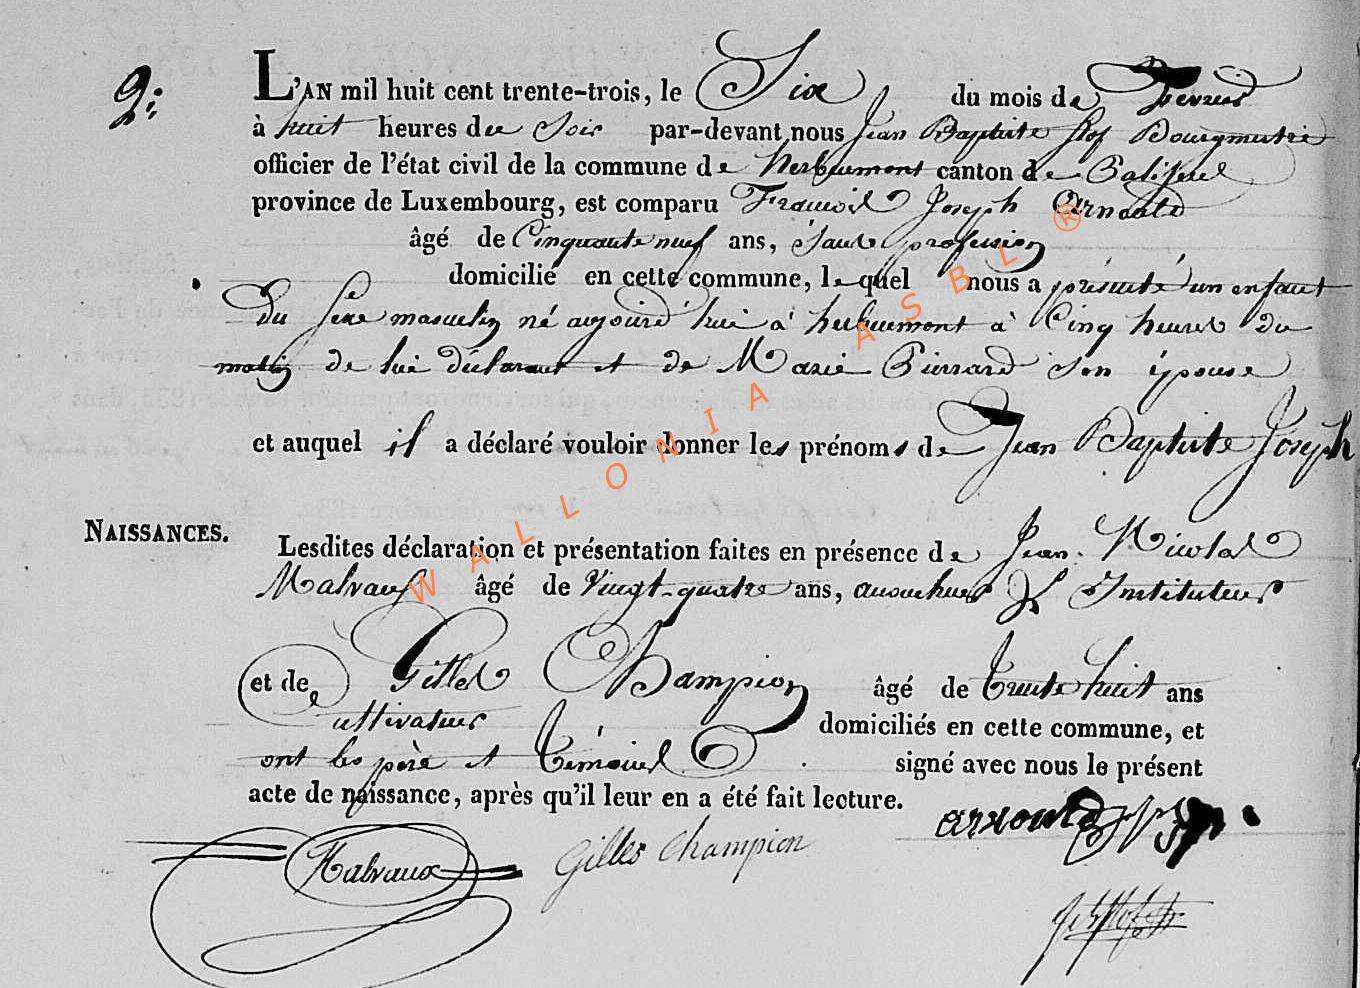 2:
L'AN mil huit cent trente-trois, le Six du mois de Fevrier
à huit heures du Soir par-devant nous Jean Baptiste Bourgmestre
officier de l'état civil de la commune de herbeumont canton de Paliseul
province de Luxembourg, est comparu Francois Joseph Arnould
âgé de Cinquante neuf ans, Sans profession
domicilié en cette commune, lequel nous a présenté un enfant
du Sexe masculin né aujourd'hui à herbeumont à Cinq heures du
matin de lui déclarant et de Marie Pierrard Son épouse
et auquel il a déclaré vouloir donner les prénoms de Jean Baptiste Joseph
NAISSANCES.
Lesdites déclaration et présentation faites en présence de Jean Nicolas
Malvaux âgé de Vingt-quatre ans, Instituteur
et de Gilles Champion âgé de Trente huit ans
cultivateur domiciliés en cette commune, et
ont les père et Témoins signé avec nous le présent
acte de naissance, après qu'il leur en a été fait lecture.
arnould
Malvaux Gilles Champion
WALLONIA ASBL ®